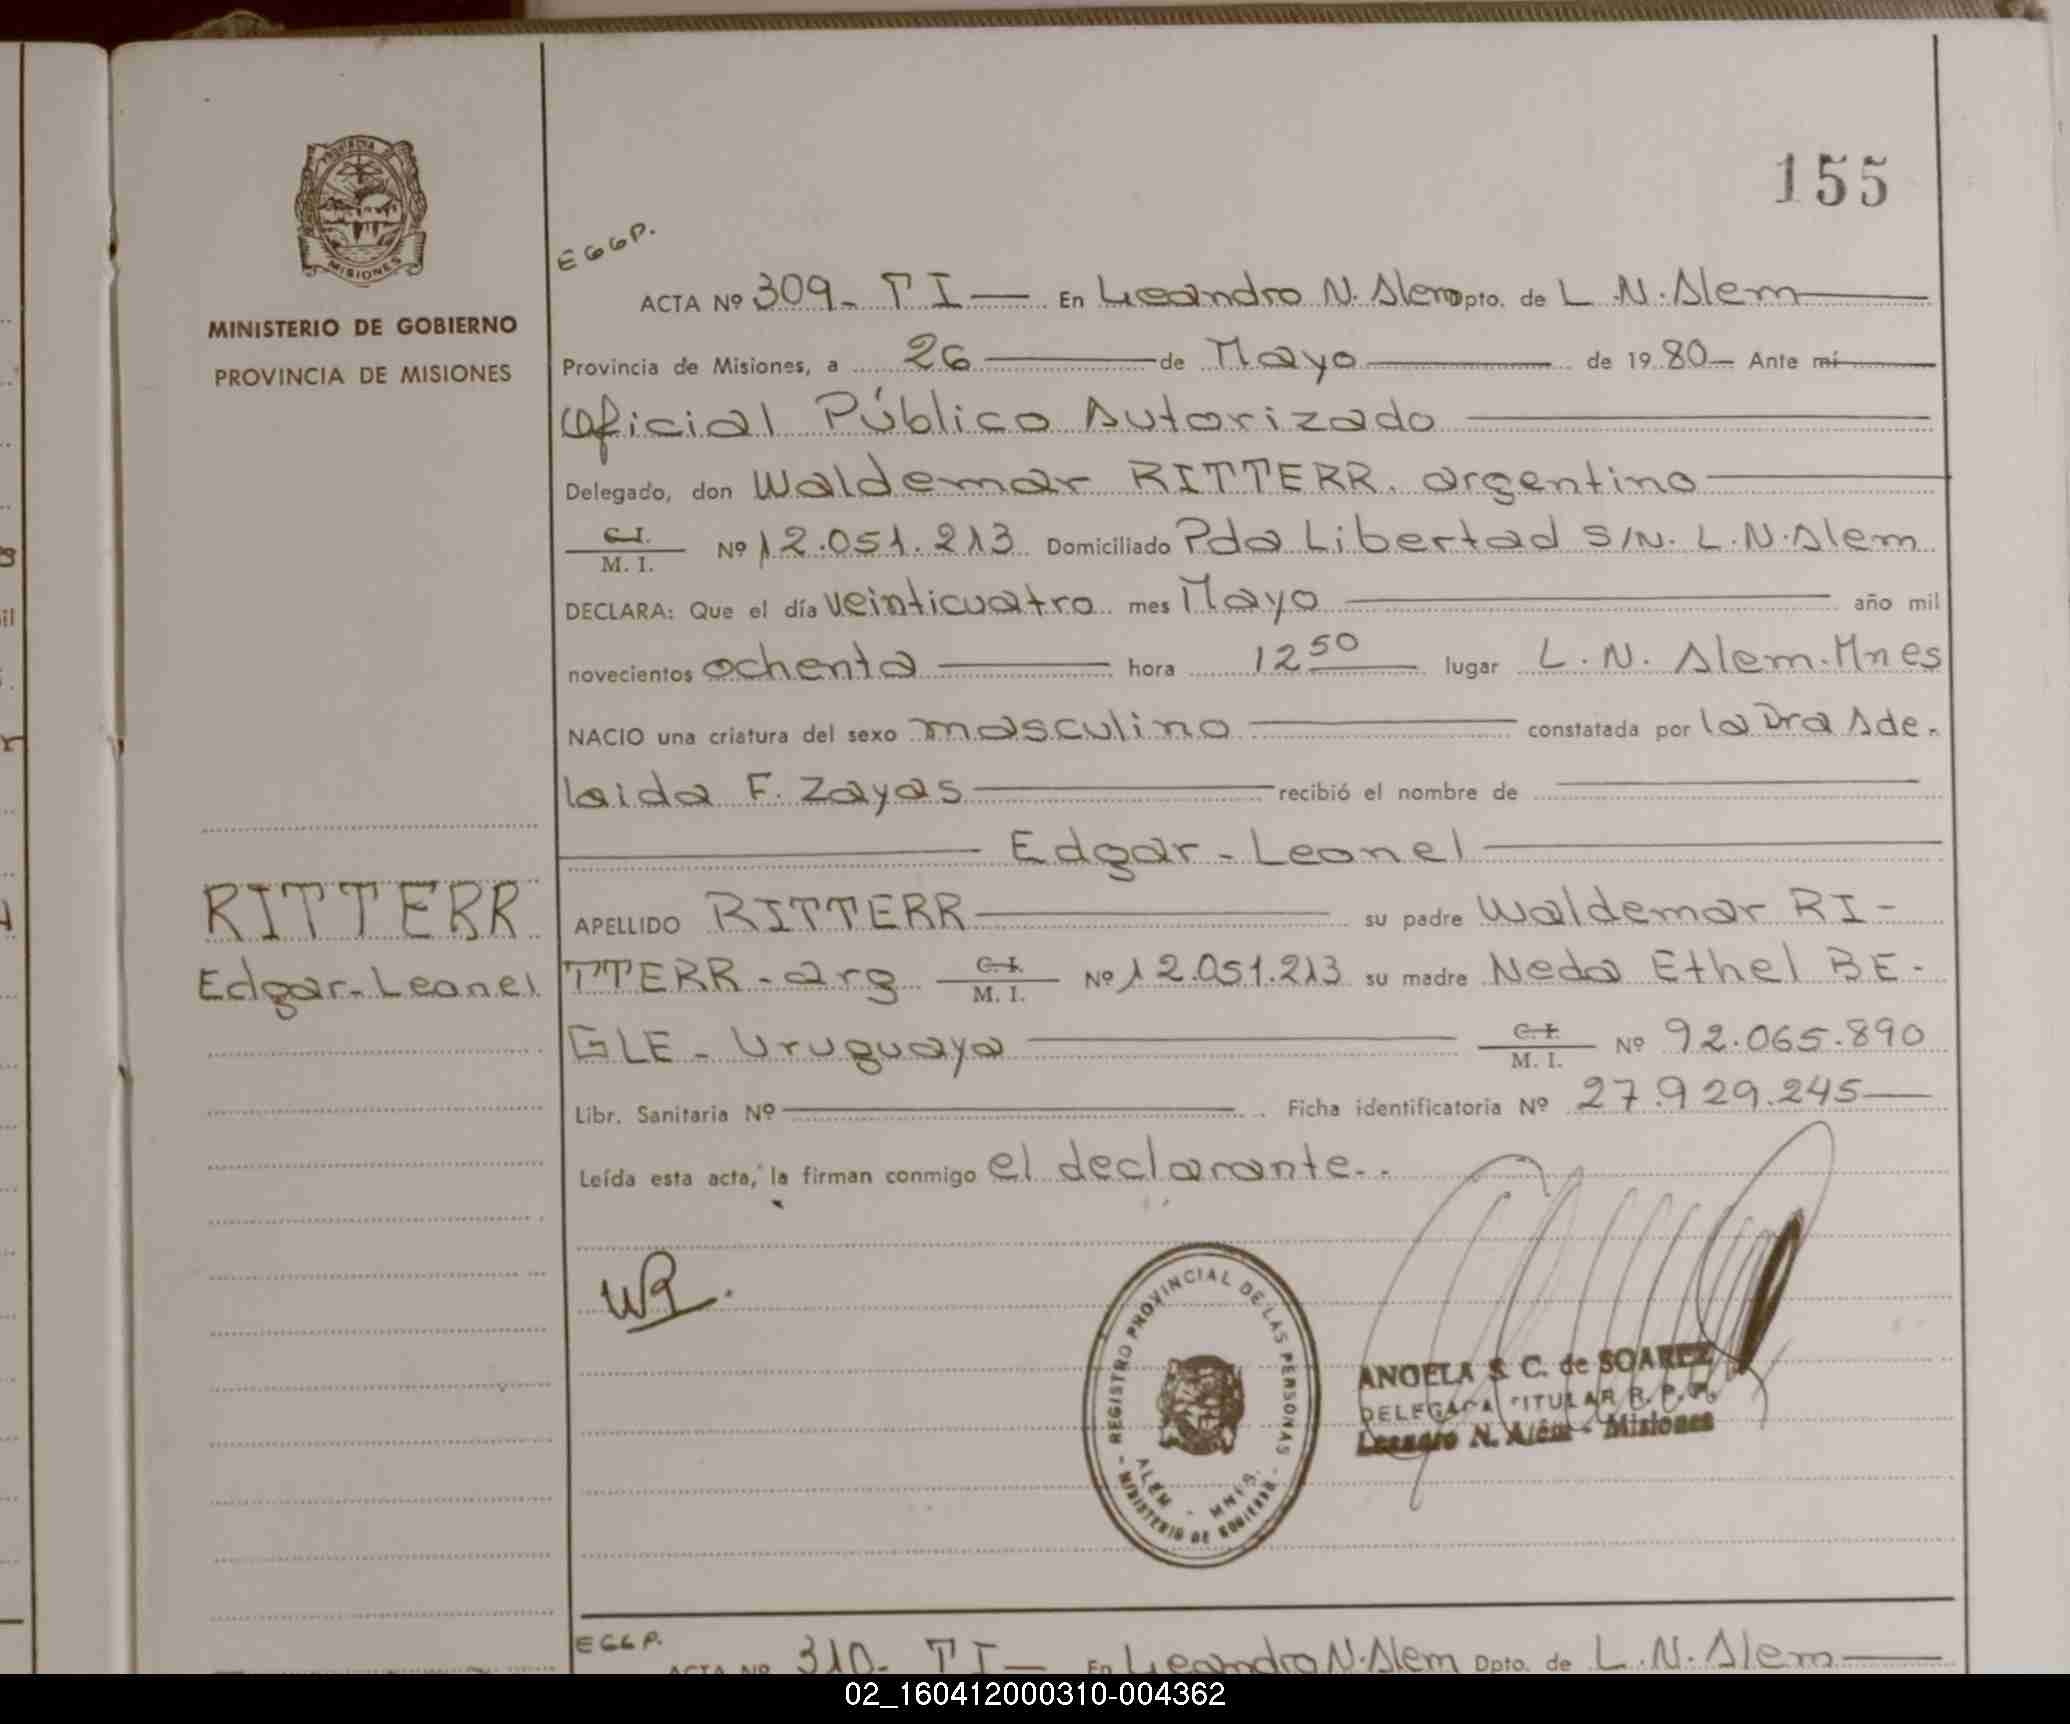 155
PROVINCIA DE
MISIONES
MINISTERIO DE GOBIERNO
PROVINCIA DE MISIONES
EGGP.
ACTA Nº 309- TI — En Leandro N. Alem Dpto. de L. N. Alem
Provincia de Misiones, a 26 de Mayo de 19 80 — Ante mí
Oficial Público Autorizado
Delegado, don Waldemar RITTERR. argentino
C.I.
M. I. Nº 12.051.213 Domiciliado Pda Libertad S/N. L.N.Alem
DECLARA: Que el día veinticuatro mes Mayo año mil
novecientos ochenta hora 12 50 lugar L. N. Alem. Mnes
NACIO una criatura del sexo masculino constatada por la Dra Ade-
laida F. Zayas recibió el nombre de
Edgar - Leonel
RITTERR
Edgar-Leonel
APELLIDO RITTERR su padre Waldemar RI-
TTERR - arg C.I. M. I. Nº 12.051.213 su madre Neda Ethel BE-
GLE - Uruguaya C.I. M. I. Nº 92.065.890
Libr. Sanitaria Nº Ficha identificatoria Nº 27.929.245
Leída esta acta, la firman conmigo el declarante..
WR.
REGISTRO PROVINCIAL DE LAS PERSONAS
ALEM - MNES.
- MINISTERIO DE GOBIERNO -
ANGELA S. C. de SOAREZ
DELEGADA TITULAR R. P. P.
Leandro N. Além - Misiones
EGGP.
ACTA Nº 310- TI — En Leandro N. Alem Dpto. de L. N. Alem
02_160412000310-004362